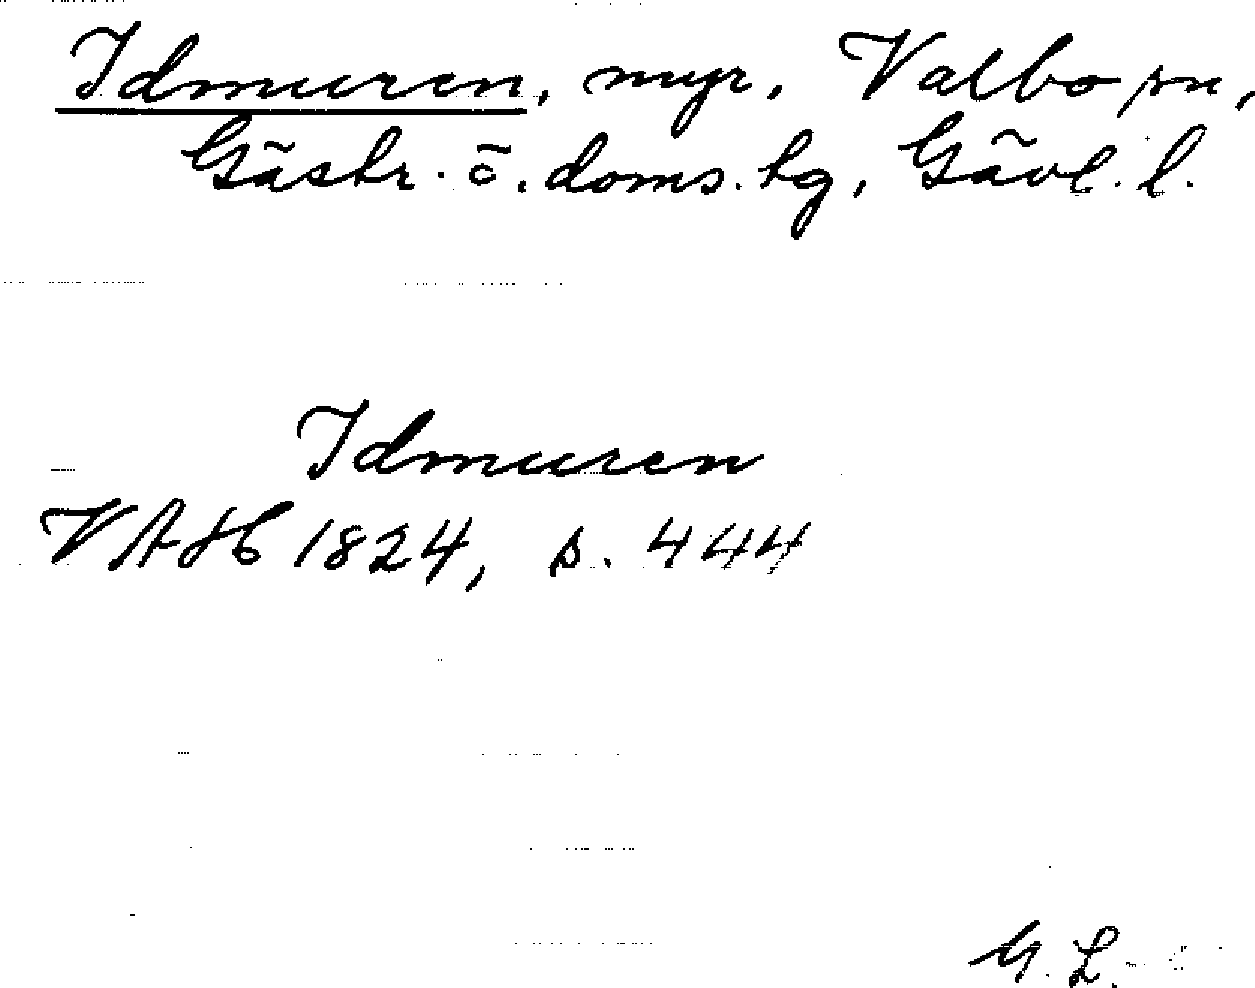 Idmuren, myr, Valbo sn,
Gästr. ö. doms. tg, Gävl. l.
Idmuren
VAH 1824, s. 444
G. L.